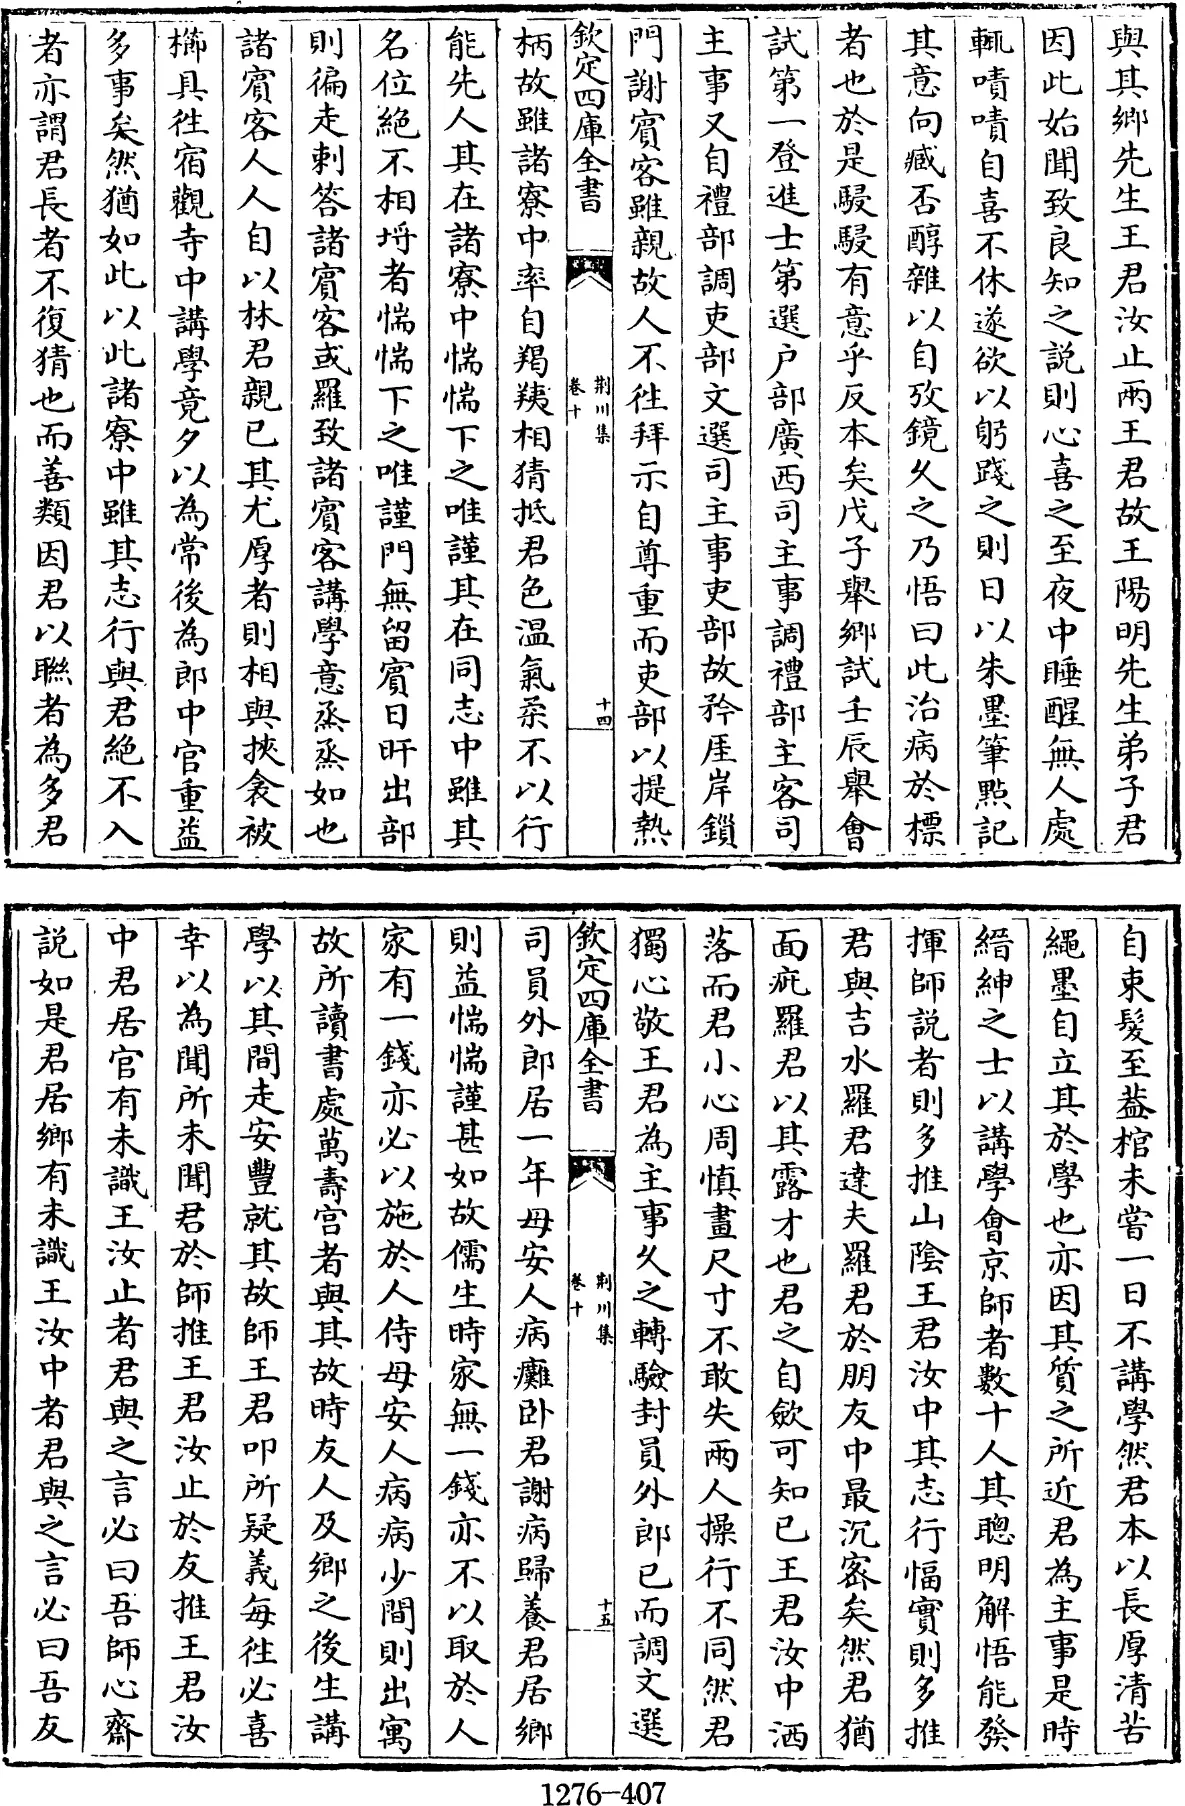 與其鄉先生王君汝止兩王君故王陽明先生弟子君
因此始聞致良知之説則心喜之至夜中睡醒無人處
輒嘖嘖自喜不休遂欲以躬踐之則日以朱墨筆㸃記
其意向臧否醇雜以自攷鏡久之乃悟曰此治病於標
者也於是駸駸有意乎反本矣戊子舉鄉試壬辰舉會
試第一登進士第選户部廣西司主事調禮部主客司
主事又自禮部調吏部文選司主事吏部故矜厓岸鎖
門謝賓客雖親故人不徃拜示自尊重而吏部以提熱
欽定四庫全書
荆川集
卷十
十四
柄故雖諸寮中率自羯羠相猜抵君色温氣柔不以行
能先人其在諸寮中惴惴下之唯謹其在同志中雖其
名位絶不相埒者惴惴下之唯謹門無留賓日旰出部
則徧走刺答諸賓客或羅致諸賓客講學意烝烝如也
諸賓客人人自以林君親已其尤厚者則相與挾衾被
櫛具徃宿觀寺中講學竟夕以為常後為郎中官重益
多事矣然猶如此以此諸寮中雖其志行與君絶不入
者亦謂君長者不復猜也而善類因君以聮者為多君
自束髮至葢棺未嘗一日不講學然君本以長厚清苦
繩墨自立其於學也亦因其質之所近君為主事是時
縉紳之士以講學會京師者數十人其聰明解悟能發
揮師説者則多推山隂王君汝中其志行愊實則多推
君與吉水羅君達夫羅君於朋友中最沉宻矣然君猶
面疵羅君以其露才也君之自歛可知已王君汝中洒
落而君小心周慎畫尺寸不敢失兩人操行不同然君
獨心敬王君為主事久之轉驗封員外郎已而調文選
欽定四庫全書
荆川集
卷十
十五
司員外郎居一年母安人病癱卧君謝病歸養君居鄉
則益惴惴謹甚如故儒生時家無一錢亦不以取於人
家有一錢亦必以施於人侍母安人病病少間則出寓
故所讀書處萬壽宫者與其故時友人及鄉之後生講
學以其間走安豐就其故師王君叩所疑義每徃必喜
幸以為聞所未聞君於師推王君汝止於友推王君汝
中君居官有未識王汝止者君與之言必曰吾師心齋
説如是君居鄉有未識王汝中者君與之言必曰吾友
1276—407